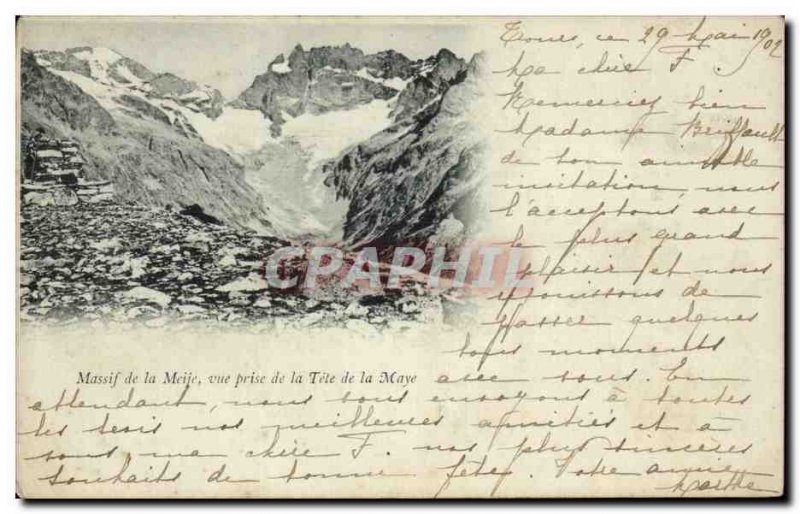 Tours, ce 29 Mai 1902
Ma chère F.
Remerciez bien
Madame
de son aimable
invitation, nous
l'acceptons avec
le plus grand
plaisir et nous
réjouissons de
passer quelques
bons moments
CPAPHIL
Massif de la Meije, vue prise de la Tête de la Maye
avec vous. En
attendant, nous vous envoyons à toutes
les trois nos meilleures amitiés et à
vous, ma chère F. nos plus sincères
souhaits de bonne fête. Votre amie
Marthe